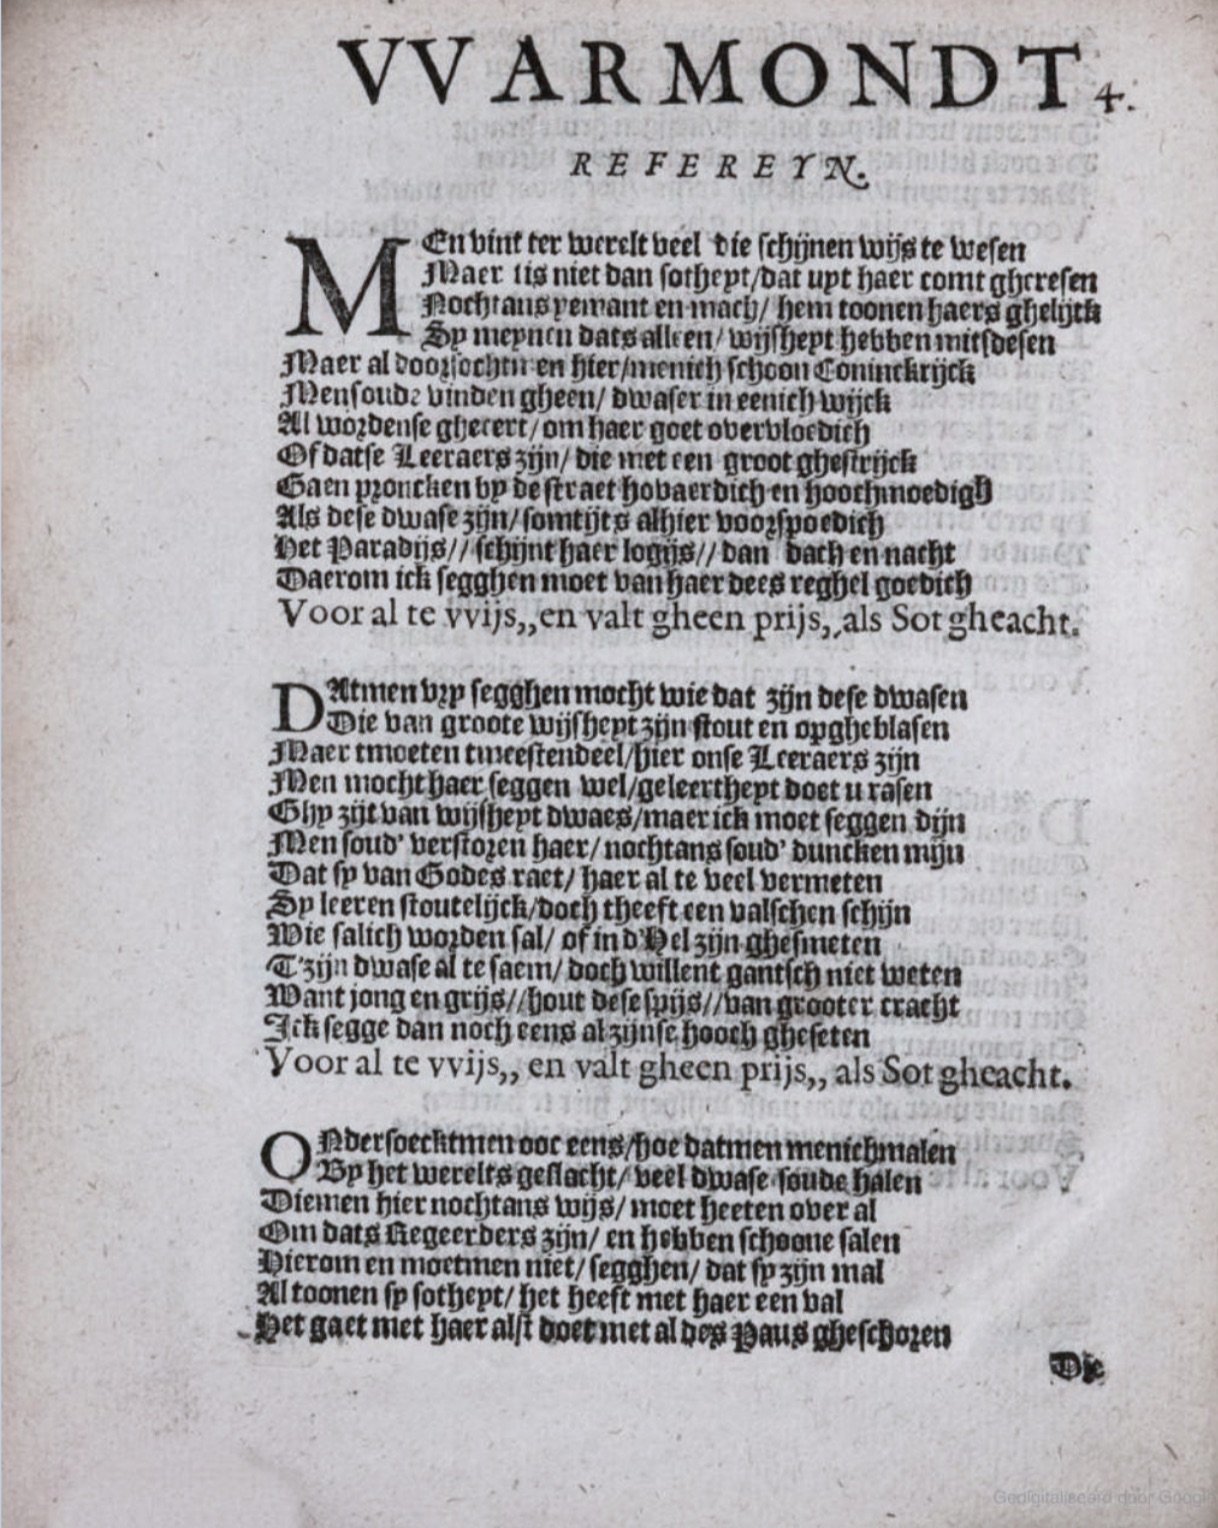 VVARMONDT 4.
REFEREYN.
MEn vint ter werelt veel die schijnen wijs te wesen
Maer tis niet dan sotheyt/dat uyt haer comt gheresen
Nochtans yemant en mach/ hem toonen haers ghelijck
Sy meynen dats alleen/ wijsheyt hebben mitsdesen
Maer al doorsochtmen hier/menich schoon Coninckrijck
Men soude vinden gheen/ dwaser in eenich wijck
Al wordense gheeert/om haer goet overvloedich
Of datse Leeraers zijn/ die met een groot ghestrijck
Gaen proncken by de straet hovaerdich en hoochmoedigh
Als dese dwase zijn/somtijts alhier voorspoedich
Het Paradijs// schijnt haer logijs// dan dach en nacht
Daerom ick segghen moet van haer dees reghel goedich
Voor al te vvijs,,en valt gheen prijs,,als Sot gheacht.
DAtmen vry segghen mocht wie dat zijn dese dwasen
Die van groote wijsheyt zijn stout en opgheblasen
Maer tmoeten tmeestendeel/hier onse Leeraers zijn
Men mocht haer seggen wel/geleertheyt doet u rasen
Ghy zijt van wijsheyt dwaes/maer ick moet seggen dijn
Men soud' verstoren haer/ nochtans soud' duncken mijn
Dat sy van Godes raet/ haer al te veel vermeten
Sy leeren stoutelijck/doch theeft een valschen schijn
Wie salich worden sal/ of in d'Hel zijn ghesmeten
T'zijn dwase al te saem/ doch willent gantsch niet weten
Want jong en grijs//hout dese spijs//van grooter cracht
Ick segge dan noch eens al zijnse hooch gheseten
Voor al te vvijs,, en valt gheen prijs,, als Sot gheacht.
ONdersoecktmen ooc eens/hoe datmen menichmalen
By het werelts geslacht/ veel dwase soude halen
Diemen hier nochtans wijs/ moet heeten over al
Om dats Regeerders zijn/ en hebben schoone salen
Hierom en moetmen niet/ segghen/ dat sy zijn mal
Al toonen sy sotheyt/ het heeft met haer een val
Het gaet met haer alst doet met al des Paus gheschoren
Die
Gedigitaliseerd door Google